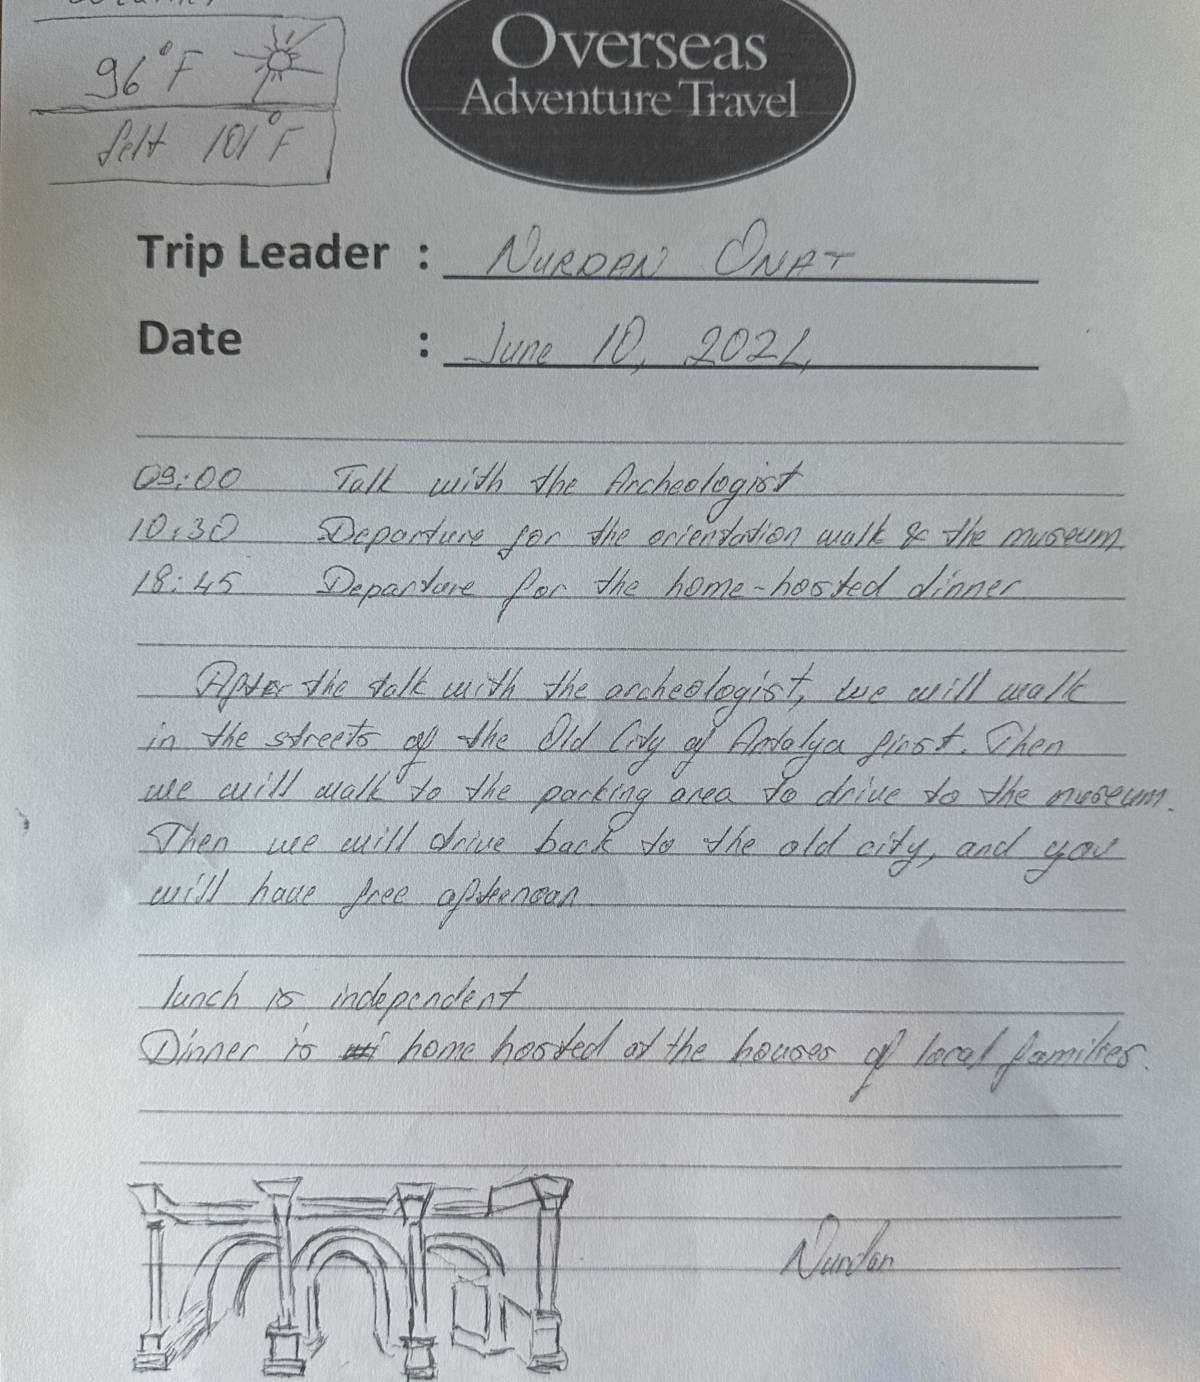 96°F
felt 101°F
Overseas
Adventure Travel
Trip Leader : NURDAN ONAT
Date : June 10, 2024
09:00 Talk with the Archeologist
10:30 Departure for the orientation walk & the museum.
18:45 Departure for the home-hosted dinner
After the talk with the archeologist, we will walk
in the streets of the Old City of Antalya first. Then
we will walk to the parking area to drive to the museum.
Then we will drive back to the old city, and you
will have free afternoon
lunch is independent
Dinner is home hosted at the houses of local families.
Nurdan